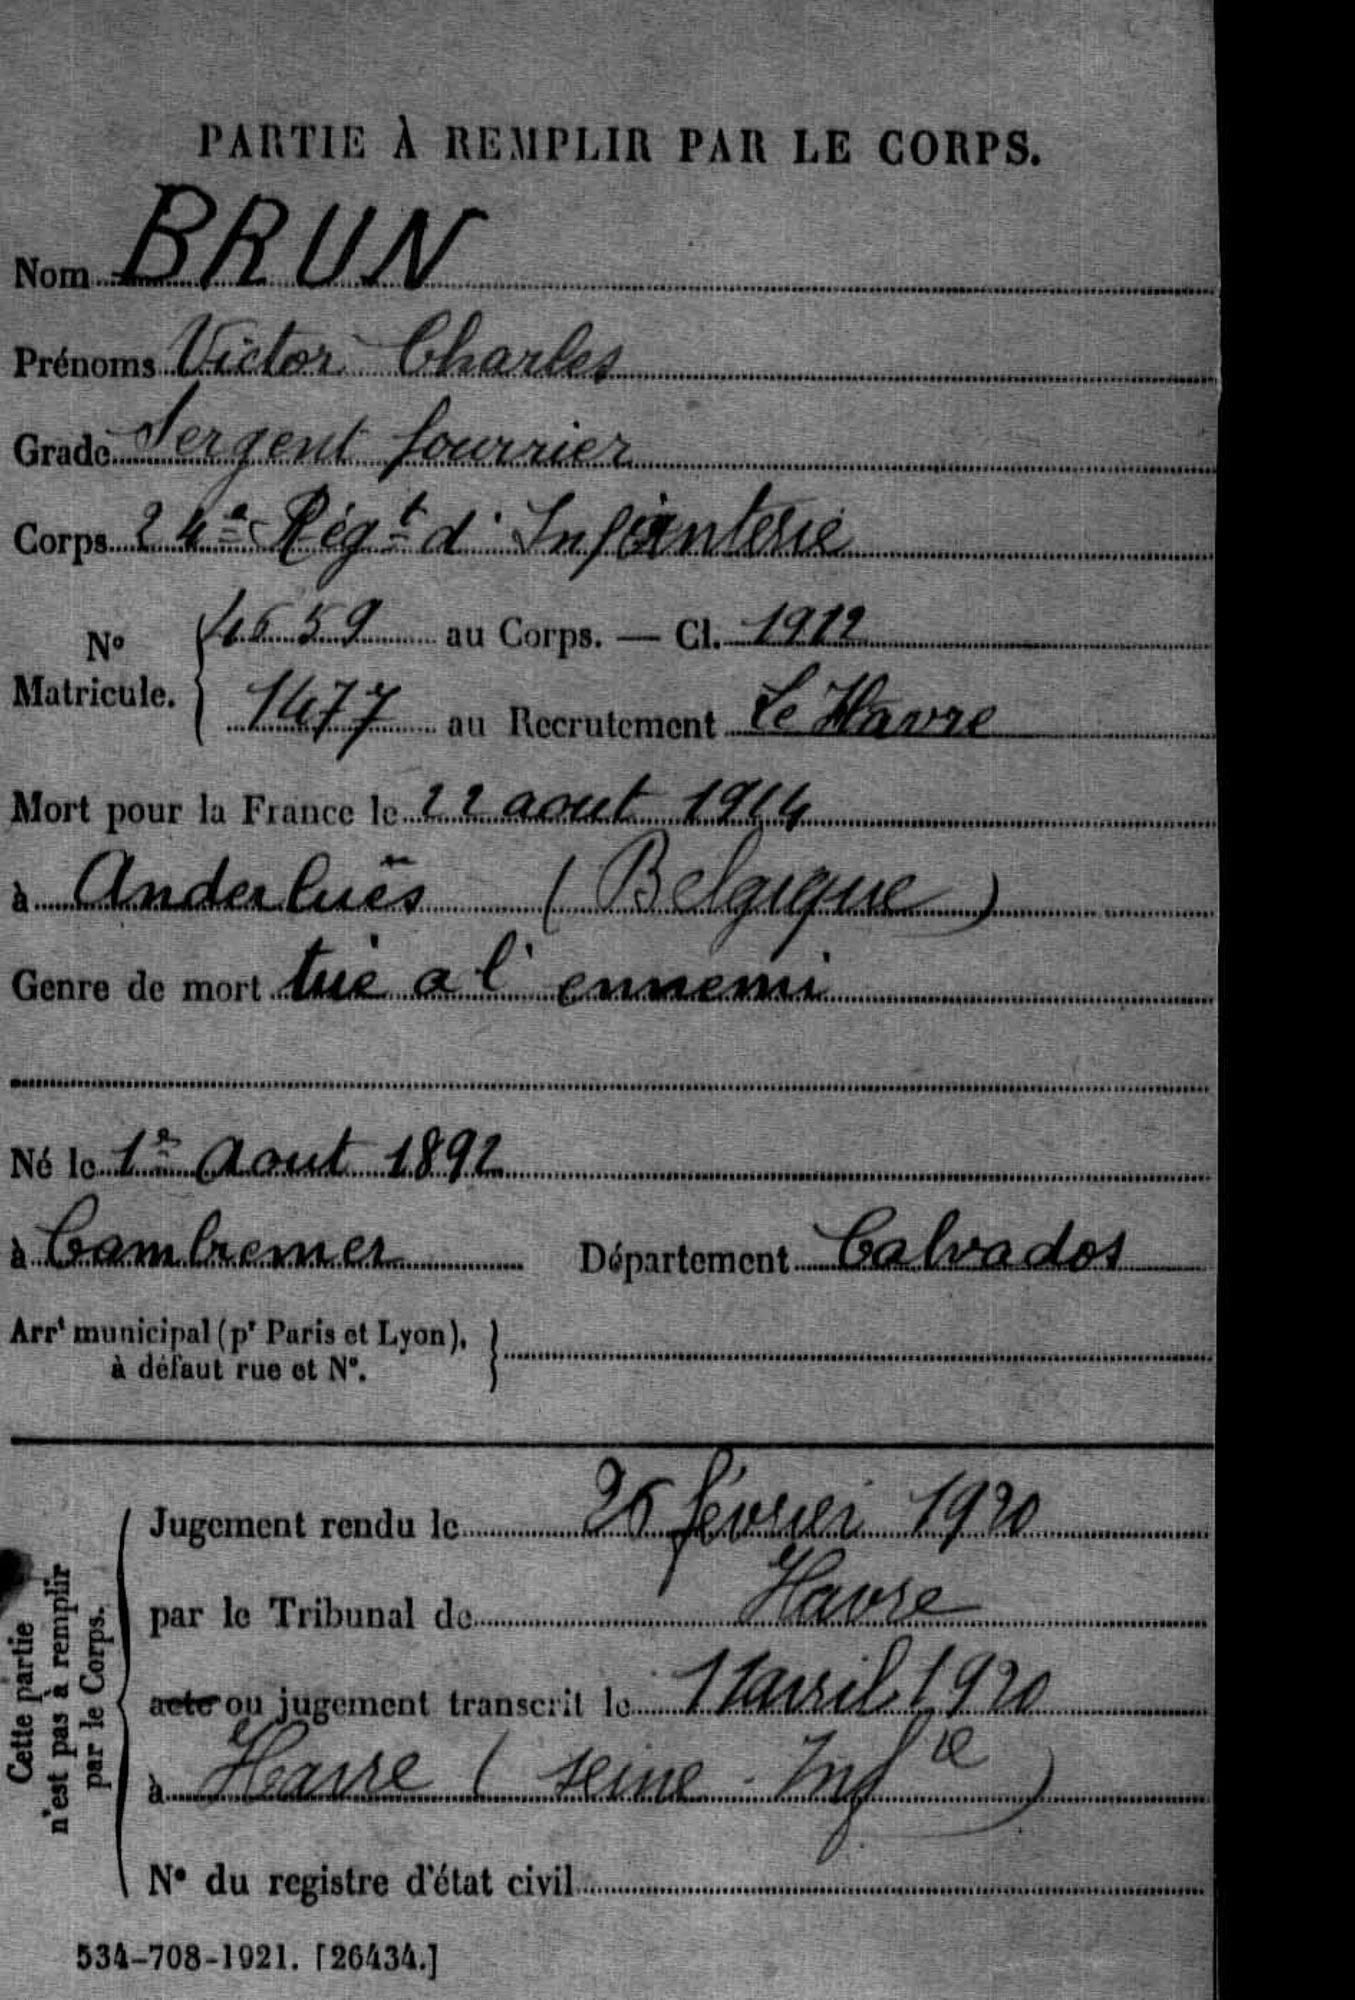 PARTIE À REMPLIR PAR LE CORPS.
Nom BRUN
Prénoms Victor Charles
Grade Sergent fourrier
Corps 24e Régt d'Infanterie
No Matricule. { 4659 au Corps. — Cl. 1912
1477 au Recrutement Le Havre
Mort pour la France le 22 aout 1914
à Anderluës (Belgique)
Genre de mort tué a l'ennemi
Né le 1e Aout 1892
à Cambremer Département Calvados
Arrt municipal (pr Paris et Lyon), à défaut rue et N°. }
Cette partie n'est pas à remplir par le Corps.
Jugement rendu le 26 février 1920
par le Tribunal de Havre
acte ou jugement transcrit le 11 avril 1920
à Havre (Seine-Infie)
N° du registre d'état civil
534-708-1921. [26434.]